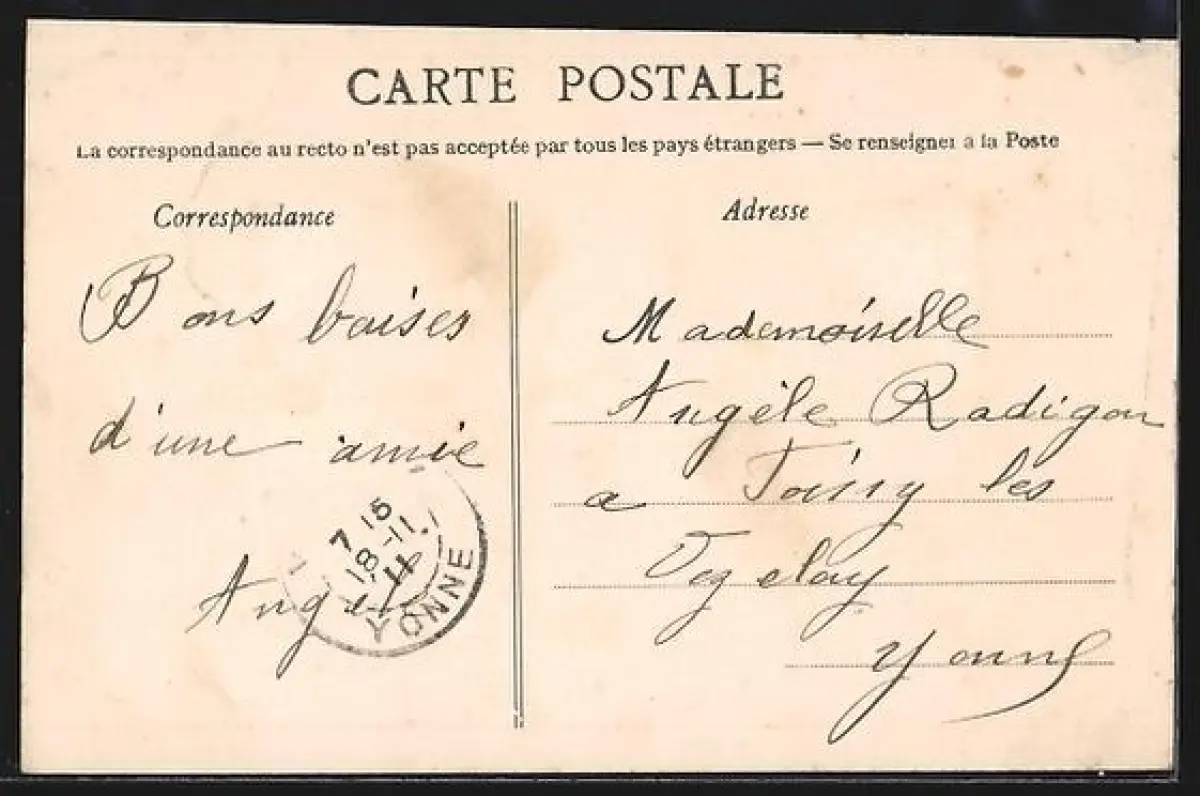 CARTE POSTALE
La correspondance au recto n'est pas acceptée par tous les pays étrangers — Se renseigner a la Poste
Correspondance
Adresse
Bons baises
d'une amie
7 15
18-11
11
YONNE
Mademoiselle
Angèle Radigon
a Foissy les
Vezelay
Yonne